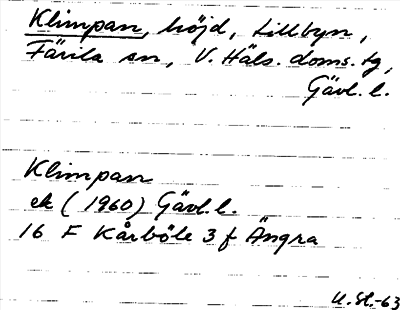 Klimpan, höjd, Lillbyn,
Färila sn, V. Häls. doms. tg,
Gävl. l.
Klimpan
ek (1960) Gävl. l.
16 F Kårböle 3 f Ängra
U. St.-63